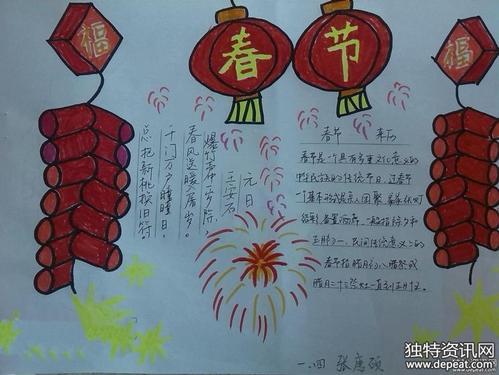 福
春节
福
春节 来历
春节是一个具有多重文化意义的
中华民族的传统节日,过春节
一个基本形式是亲人团聚
一般指除夕和
正月初一,民间传统意义上的
春节指腊月初八腊祭或
腊月二十三祭灶一直到正月十五。
元日
王安石
爆竹声中一岁除,
春风送暖入屠
千门万户瞳瞳日,
总把新桃换旧符
一.四 张唐硕
独特资讯网
www.depeat.com